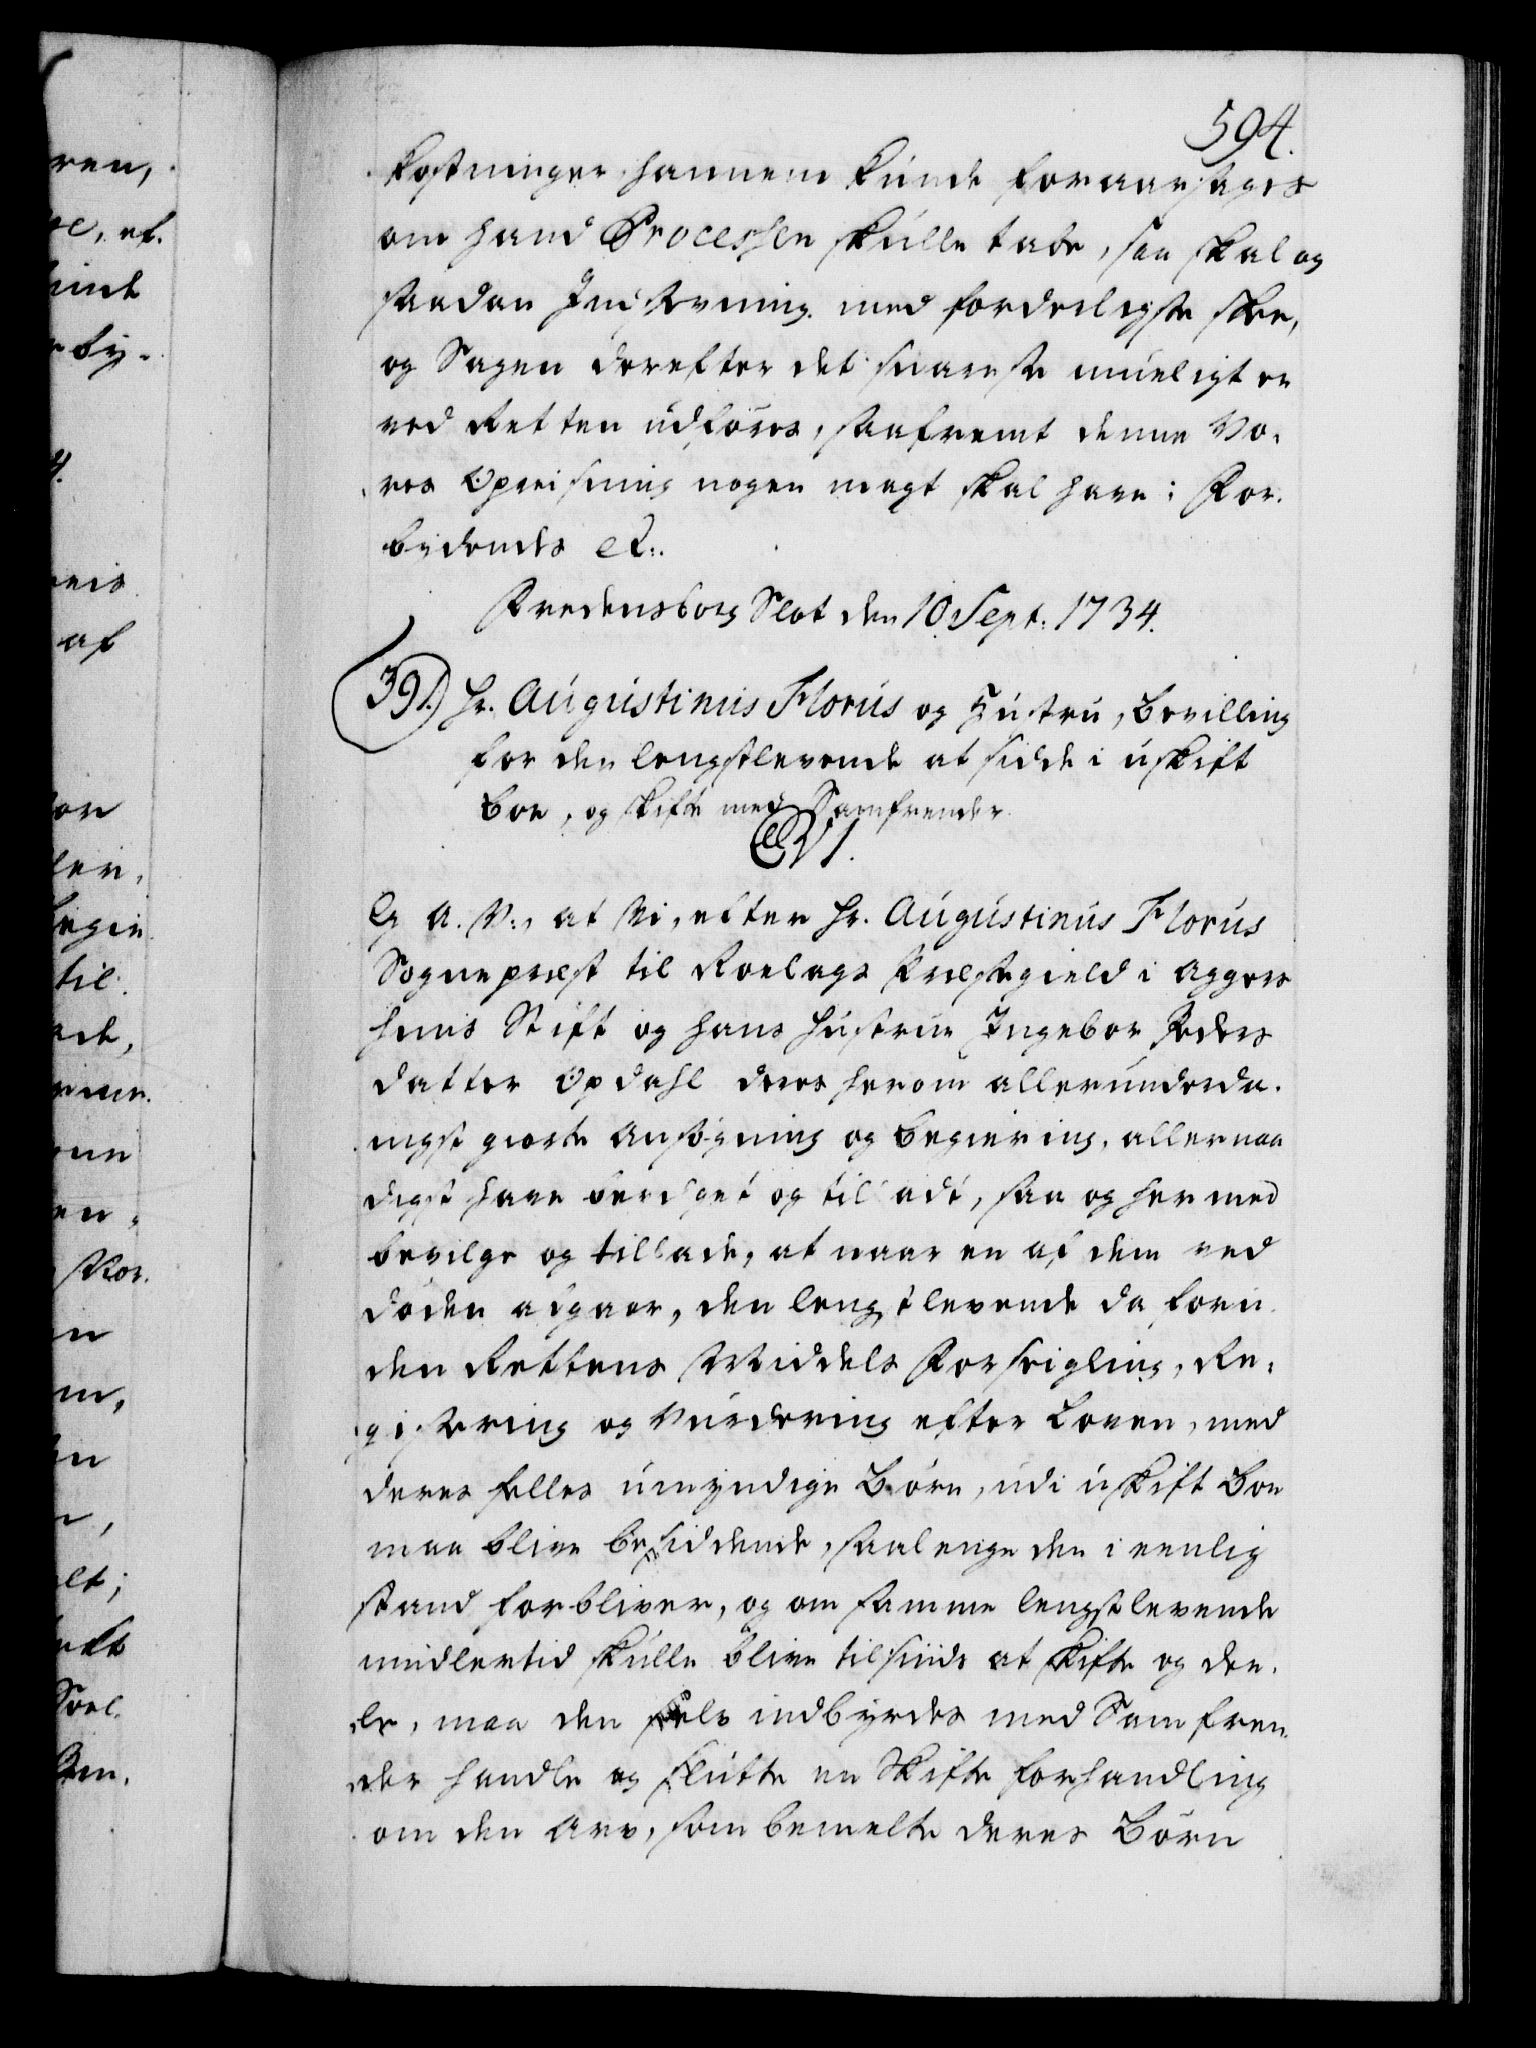 594.
Kostninger hannem kunde foraarsages
om hand Processen skulle tabe, saa skal og
saadan Indstevning med forderligste skee,
og Sagen derefter det snareste mueligt er
ved Retten udføres, saafremt denne Vo-
res Opreisning nogen magt skal have; For-
bydendes etc:.
Fredensborg Slot den 10 Sept: 1734.
391.) Hr. Augustinus Florus og Hustru, Bevilling
for den lengstlevende at sidde i uskift
Boe, og skifte med Samfrender.
C 6 V 1.
G. A. V:, at Vi, efter Hr. Augustinus Florus
Sognepræst til Roelags Præstegield i Aggers
huus Stift og hans Hustrue Ingebor Peders
datter Opdahl deres herom allerunderda-
nigst giorte Ansøgning og Begiering, allernaa
digst have bevilget og tilladt, saa og hermed
bevilge og tillade, at naar en af dem ved
døden afgaar, den lengstlevende da foru-
den Rettens Middels Forseigling, Re-
gistering og Vurdering efter Loven, med
deres felles umyndige Børn, udi uskift Boe
maa blive besiddende, saalenge den i eenlig
stand forbliver, og om samme lengstlevende
midlertid skulle blive tilsinds at skifte og dee-
le, maa den selv indbyrdes med Samfren-
der handle og slutte en Skifte forhandling
om den Arv, som bemelte deres Børn
ren,
et.
af
til
ade,
Vor.
elt;